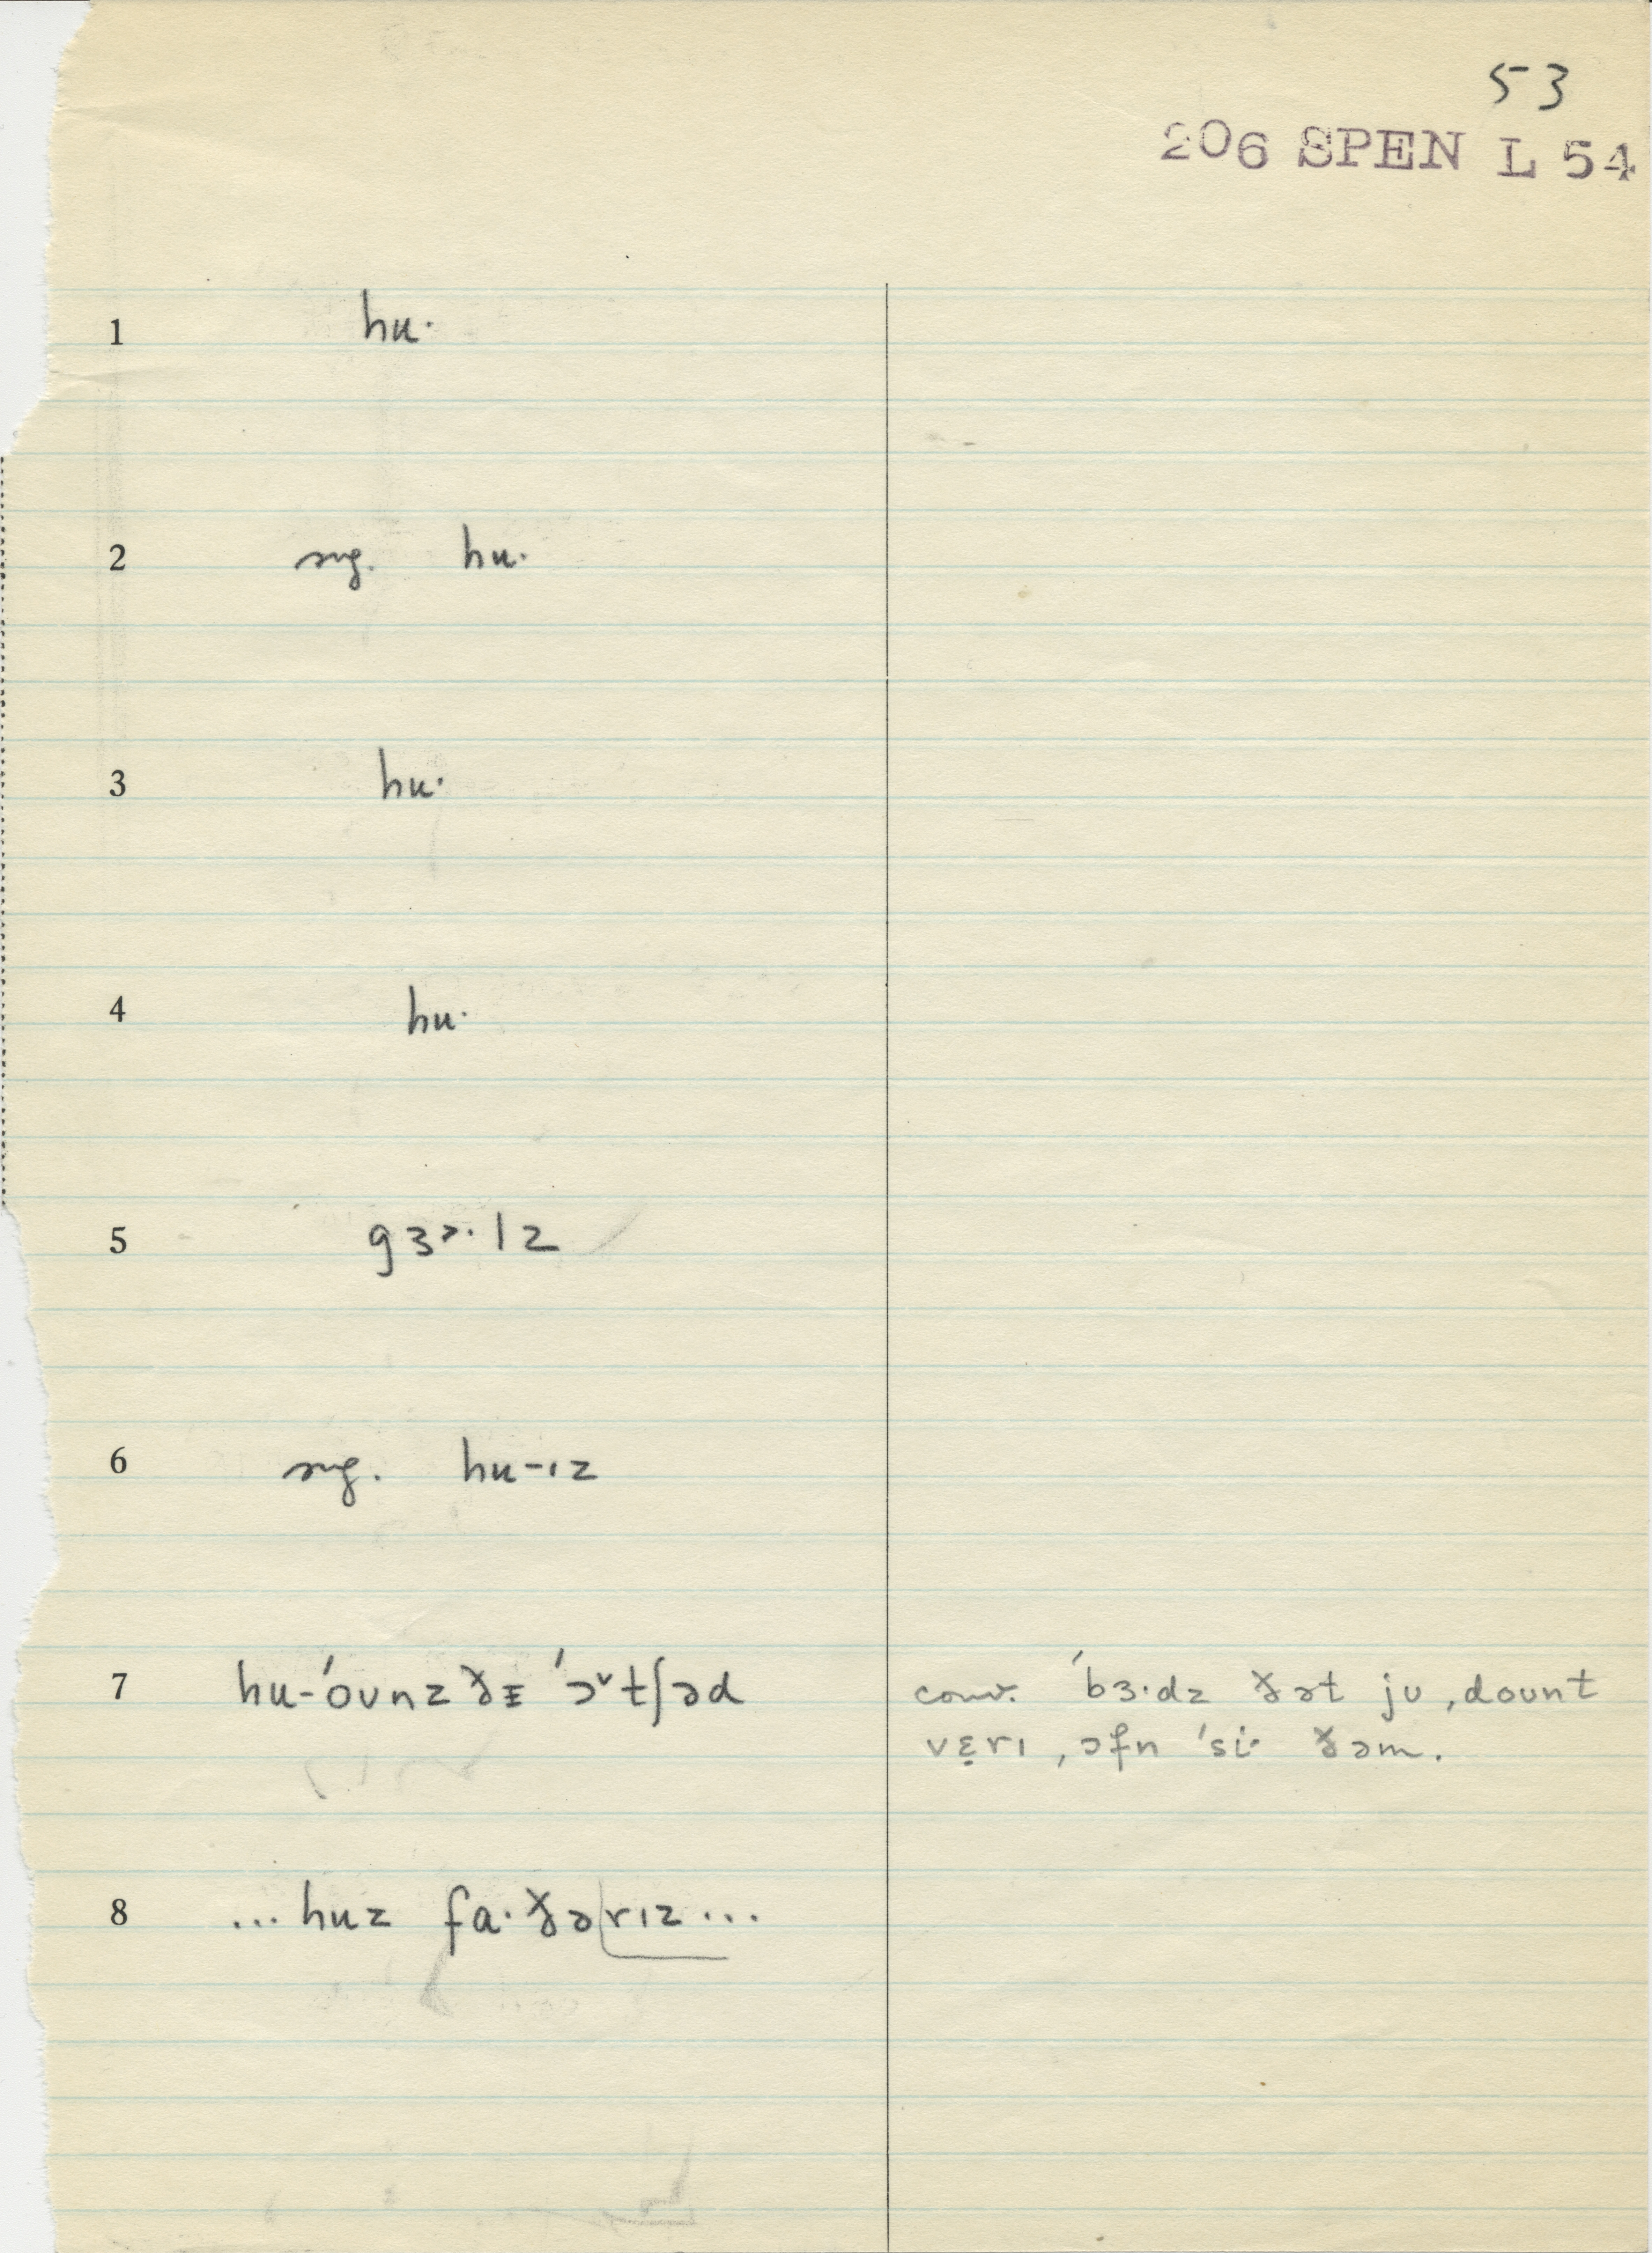 53
206 SPEN L 54
1 hu·
2 sug. hu·
3 hu·
4 hu·
5 gɜ˞·lz
6 sug. hu-ɪz
7 hu-ˈoʊnz ðɪ ˈɔ˅tʃəd
conv. ˈbɜ·dz ðət jʊ ˌdoʊnt
vɛ̣rɪ ˌɔfn ˈsi· ðəm.
8 ... huz fa·ðərɪz ...